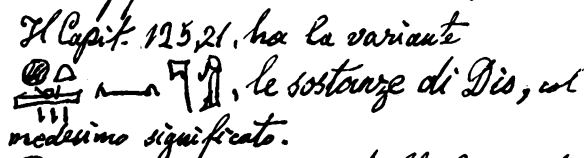 Il Capit. 125,21, ha la variante
, le sostanze di Dio, col
medesimo significato.